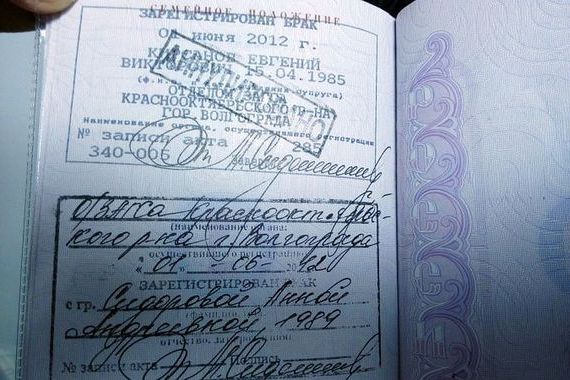 СЕМЕЙНОЕ ПОЛОЖЕНИЕ
ЗАРЕГИСТРИРОВАН БРАК
01 июня 2012 г.
ЕВГЕНИЙ
ВИКТОРОВИЧ 15.04.1985
ОТДЕЛОМ ЗАГСА
КРАСНООКТЯБРЬСКОГО Р-НА
ГОР. ВОЛГОГРАДА
наименование органа, осуществившего регистрацию
№ записи акта 285
340-006
О/ЗАГСа Краснооктябрь-
ского р-на г. Волгограда
(наименование органа,
осуществившего регистрацию)
"01" 06 2012
ЗАРЕГИСТРИРОВАН БРАК
с гр. Сидоровой Анной
Андреевной, 1989
отчество, дата рождения)
№ записи акта Подпись